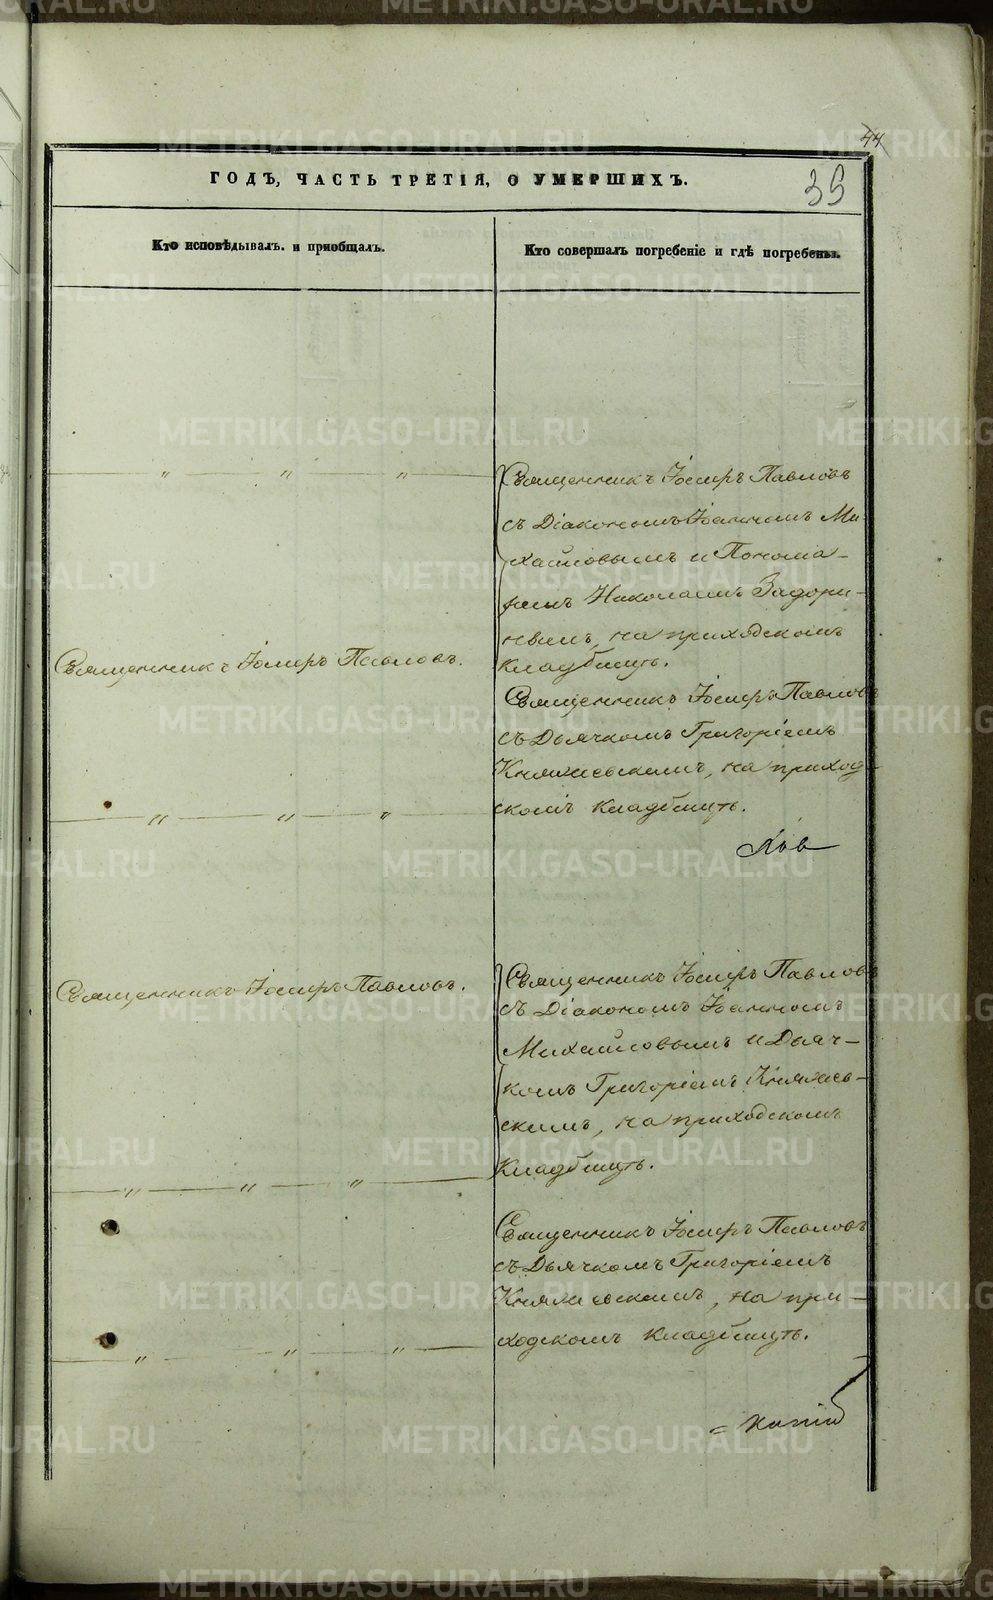 44
39
ГОДЪ, ЧАСТЬ ТРЕТІЯ, О УМЕРШИХЪ.
Кто исповѣдывалъ. и пріобщалъ.
Кто совершалъ погребеніе и гдѣ погребены.
Священникъ Іосифъ Павловъ
съ Діакономъ Іоанномъ Ми-
хайловымъ и Понома-
ремъ Николаемъ Задори-
нымъ, на приходскомъ
Кладбищѣ.
Священникъ Іосифъ Павловъ.
Священникъ Іосифъ Павловъ
съ Дьячкомъ Григоріемъ
Княжевскимъ, на приход-
скомъ Кладбищѣ.
Священникъ Іосифъ Павловъ.
Священникъ Іосифъ Павловъ
съ Діакономъ Іоанномъ
Михайловымъ и Дьяч-
комъ Григоріемъ Княжев-
скимъ, на приходскомъ
Кладбищѣ.
Священникъ Іосифъ Павловъ
съ Дьячкомъ Григоріемъ
Княжевскимъ, на при-
ходскомъ Кладбищѣ.
METRIKI.GASO-URAL.RU